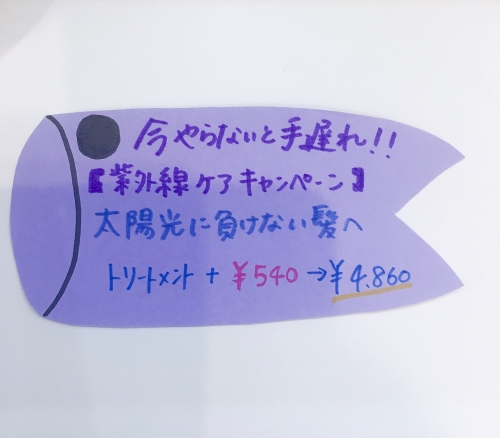 今やらないと手遅れ!!
【紫外線ケアキャンペーン】
太陽光に負けない髪へ
トリートメント + ¥540 → ¥4.860